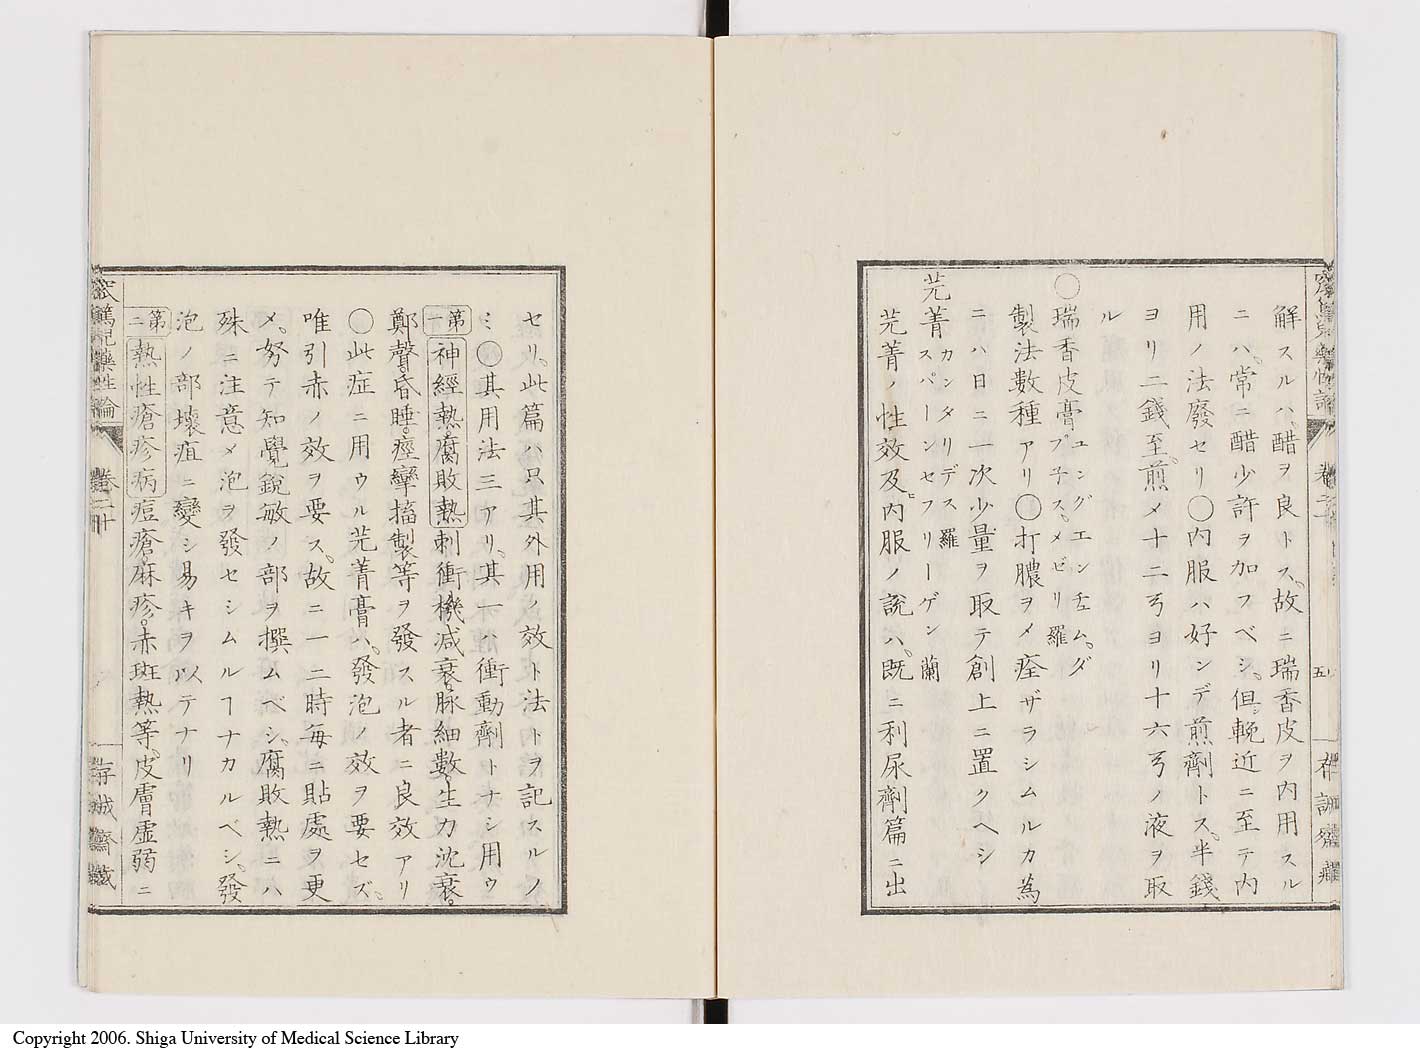 解スルハ、醋ヲ良トス。故ニ瑞香皮ヲ内用スル
ニハ、常ニ醋少許ヲ加フベシ。但輓近ニ至テ内
用ノ法廢セリ〇内服ハ好ンデ煎劑トス。半錢
ヨリ二錢至。煎メ十二弓ヨリ十六弓ノ液ヲ取
ル
〇瑞香皮膏 ユングエンㄊム。ダプ子ス。メゼリ 羅
製法數種アリ〇打膿ヲメ痊ザラシムルカ為
ニハ日ニ一次少量ヲ取テ創上ニ置クヘシ
芫菁 カンタリデス 羅 スパーンセフリーゲン 蘭
芫菁ノ性效及ヒ内服ノ說ハ、既ニ利尿劑篇ニ出
セリ。此篇ハ只其外用ノ效ト法トヲ記スルノ
ミ〇其用法三アリ。其一ハ衝動劑トナシ用ウ
第一 神經熱腐敗熱 刺衝機減衰。脉細數。生力沈衰。
鄭聲昏睡。痙攣搐製等ヲ發スル者ニ良效アリ
〇此症ニ用ウル芫菁膏ハ、發泡ノ效ヲ要セズ。
唯引赤ノ效ヲ要ス。故ニ一二時毎ニ貼處ヲ更
メ。努テ知覺銳敏ノ部ヲ撰ムベシ。腐敗熱ニハ
殊ニ注意メ泡ヲ發セシムルヿナカルベシ。發
泡ノ部壞疽ニ變シ易キヲ以テナリ
第二 熱性瘡疹病 痘瘡麻疹。赤斑熱等。皮膚虛弱ニ
藥性論
卷二
存誠齋藏